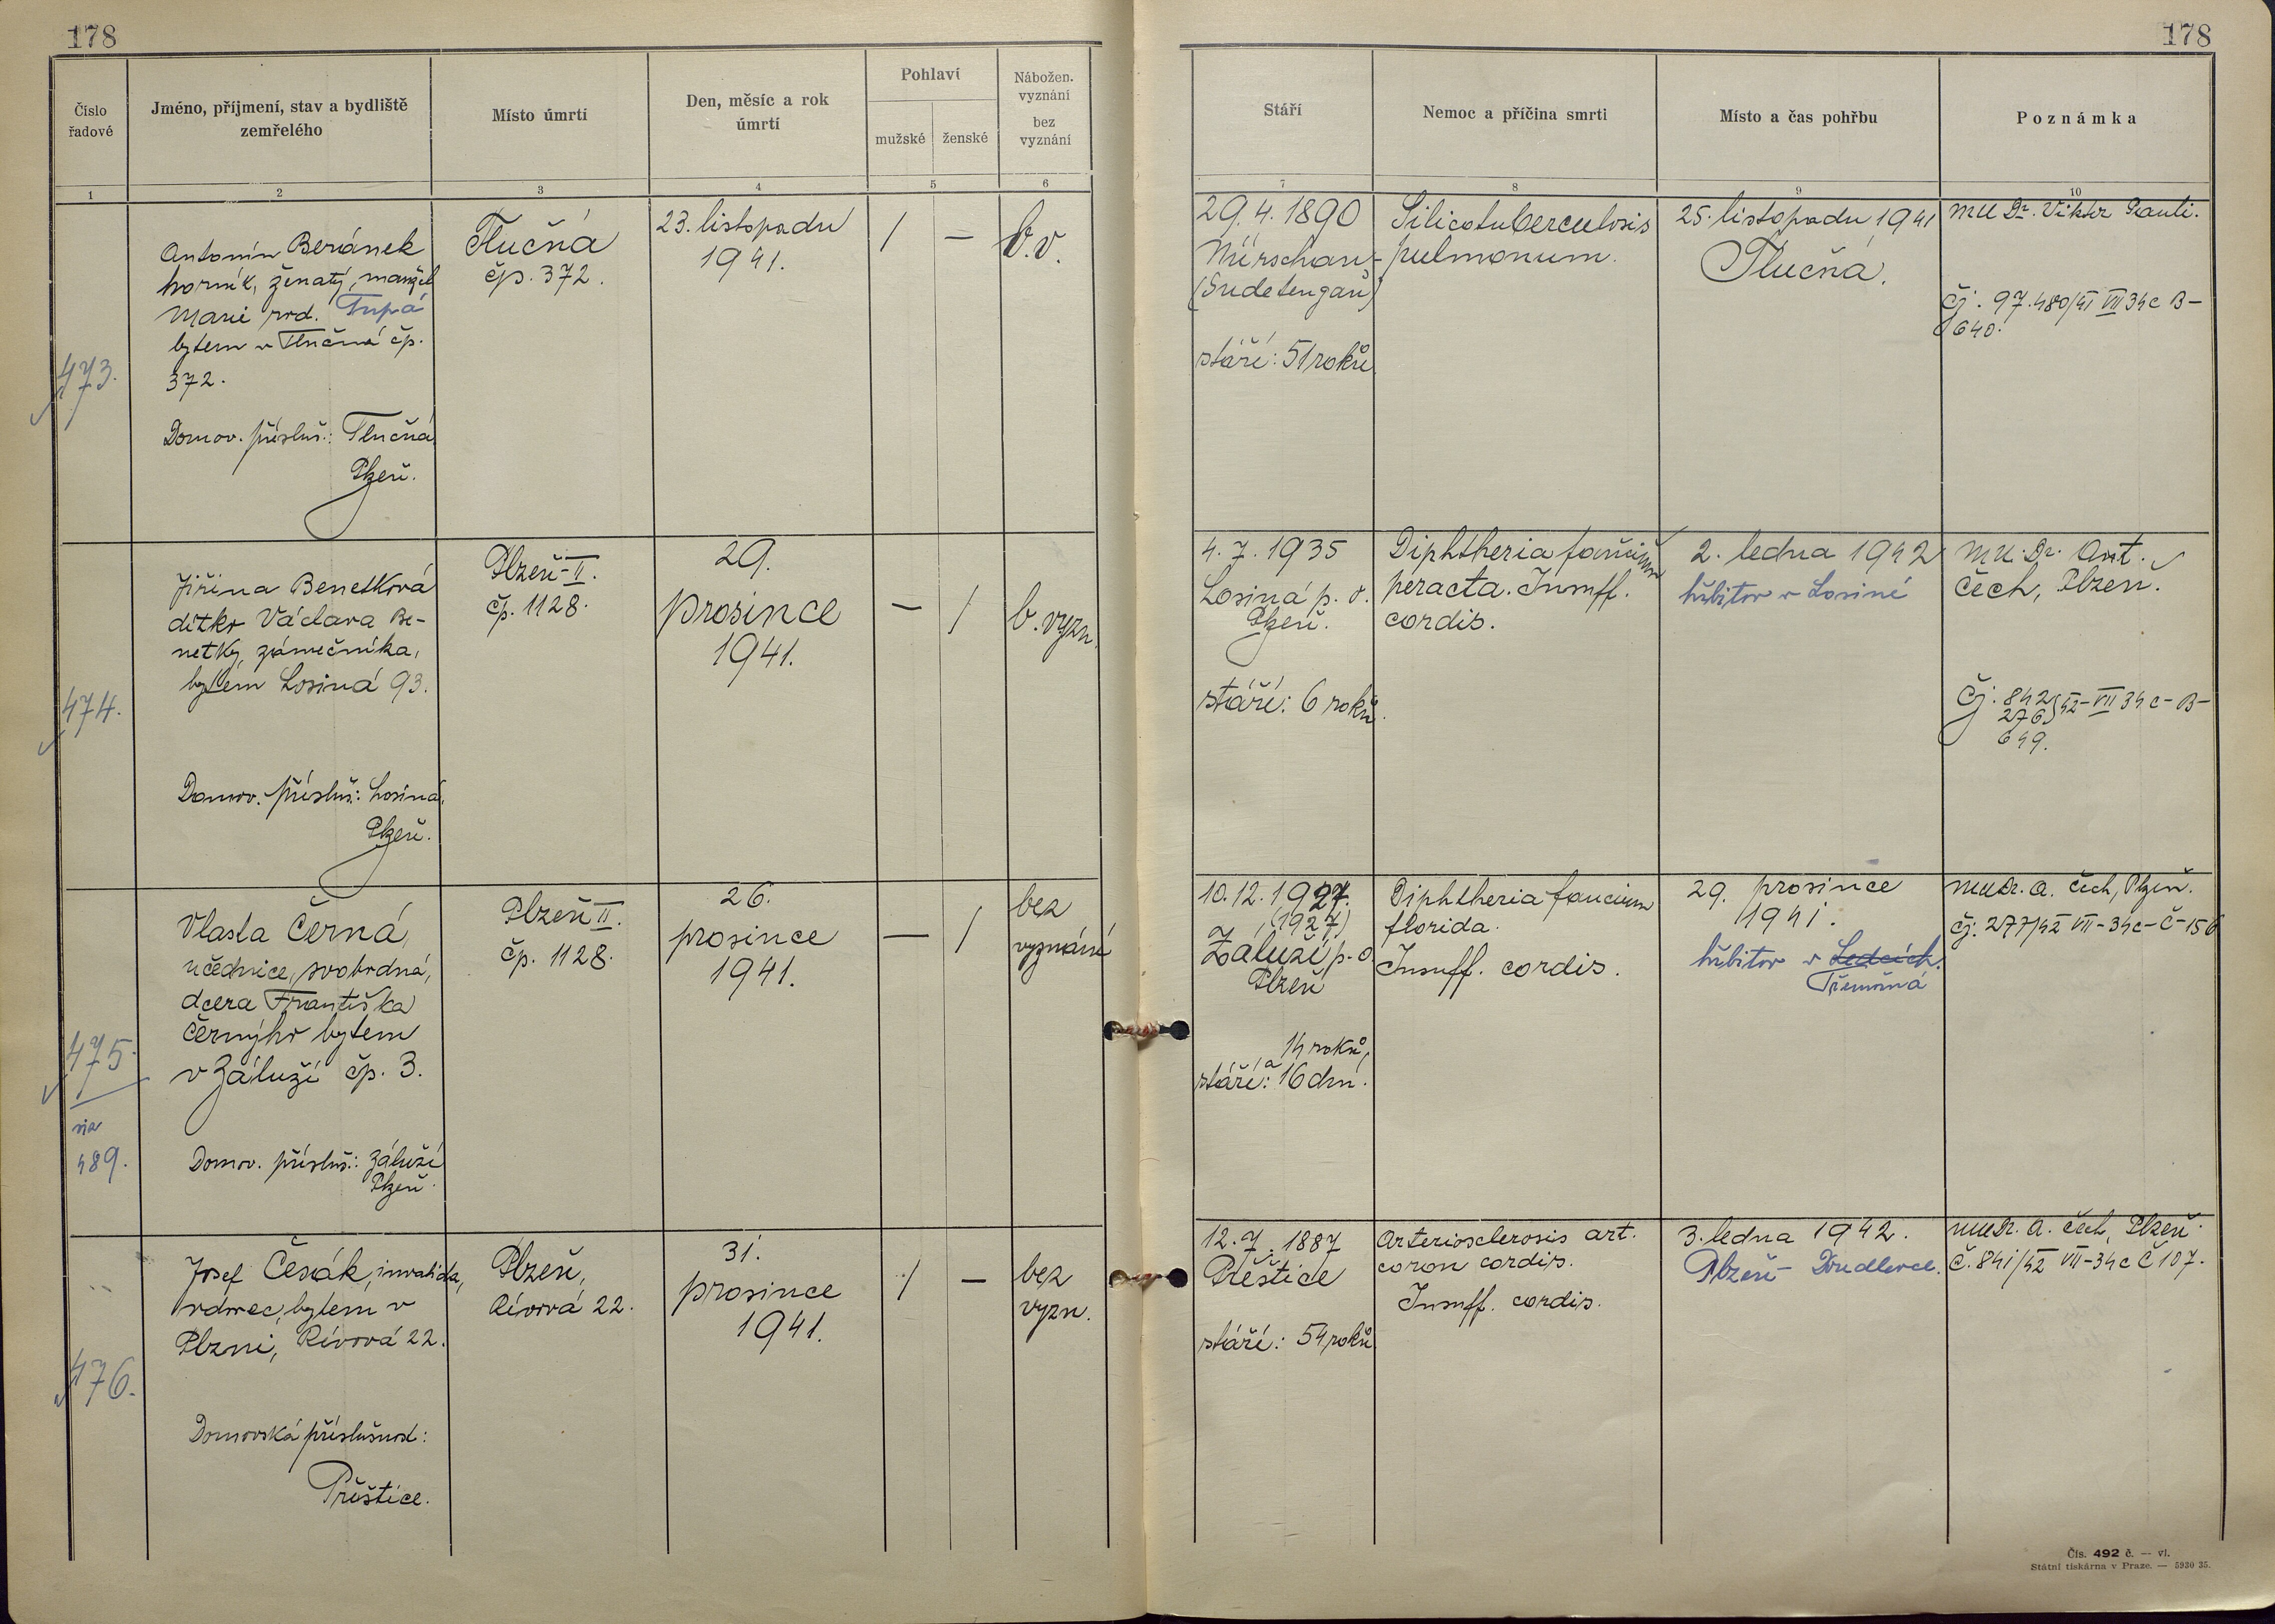 178
178
Číslo řadové
Jméno, příjmení, stav a bydliště
zemřelého
Místo úmrtí
Den, měsíc a rok
úmrtí
Pohlaví
mužské
ženské
Nábožen.
vyznání
bez
vyznání
Stáří
Nemoc a příčina smrti
Místo a čas pohřbu
Poznámka
1
2
3
4
5
6
7
8
9
10
473.
Antonín Beránek
horník, ženatý, manžel
Marie rod. Tupá
bytem v Tlučná čp.
372.
Domov. přísluš.: Tlučná
Plzeň.
Tlučná
čp. 372.
23. listopadu
1941.
/
—
b.v.
29.4.1890
Nürschau-
(Sudetengau)
stáří: 51 roků
Silicotuberculosis
pulmonum.
25. listopadu 1941
Tlučná.
MUDr. Viktor
čj. 97.480/41 VII 34c B-
640.
474.
Jiřina Benetková
dítko Václava Be-
netky, zámečníka,
bytem Losiná 93.
Domov. přísluš.: Losiná,
Plzeň.
Plzeň-II.
čp. 1128.
29.
prosince
1941.
—
/
b. vyzn.
4.7.1935
Losiná p. o.
Plzeň.
stáří: 6 roků.
Diphtheria faucium
peracta. Insuff.
cordis.
2. ledna 1942
hřbitov v Losiné
MU.Dr. Ant.
Čech, Plzen.
Čj. 842/42-VII 34c-B-
276
649.
475.
viz
489.
Vlasta Černá,
učednice, svobodná,
dcera Františka
Černýho bytem
v Záluží čp. 3.
Domov. přísluš.: Záluží
Plzeň.
Plzeň II.
čp. 1128.
26.
prosince
1941.
—
/
bez
vyznání
10.12.1927.
(1927)
Záluží p. o.
Plzeň
14 roků,
a
stáří: 16 dní.
Diphtheria faucium
florida.
Insuff. cordis.
29. prosince
1941.
hřbitov v Ledcích.
Třemošná
MUDr. A. Čech, Plzeň.
čj. 277/42 VII-34c-Č-156
476.
Josef Česák, invalida,
vdovec, bytem v
Plzni, Révová 22.
Domovská příslušnost:
Přeštice.
Plzeň,
Révová 22.
31.
prosince
1941.
/
—
bez
vyzn.
12.7.1887
Přeštice
stáří: 54 roků
Arteriosclerosis art.
coron cordis.
Insuff. cordis.
3. ledna 1942.
Plzeň- Doudlevce.
MUDr. A. Čech, Plzeň.
č. 841/42 VII-34c Č 107.
Čís. 492 č. — vl.
Státní tiskárna v Praze. — 5930 35.